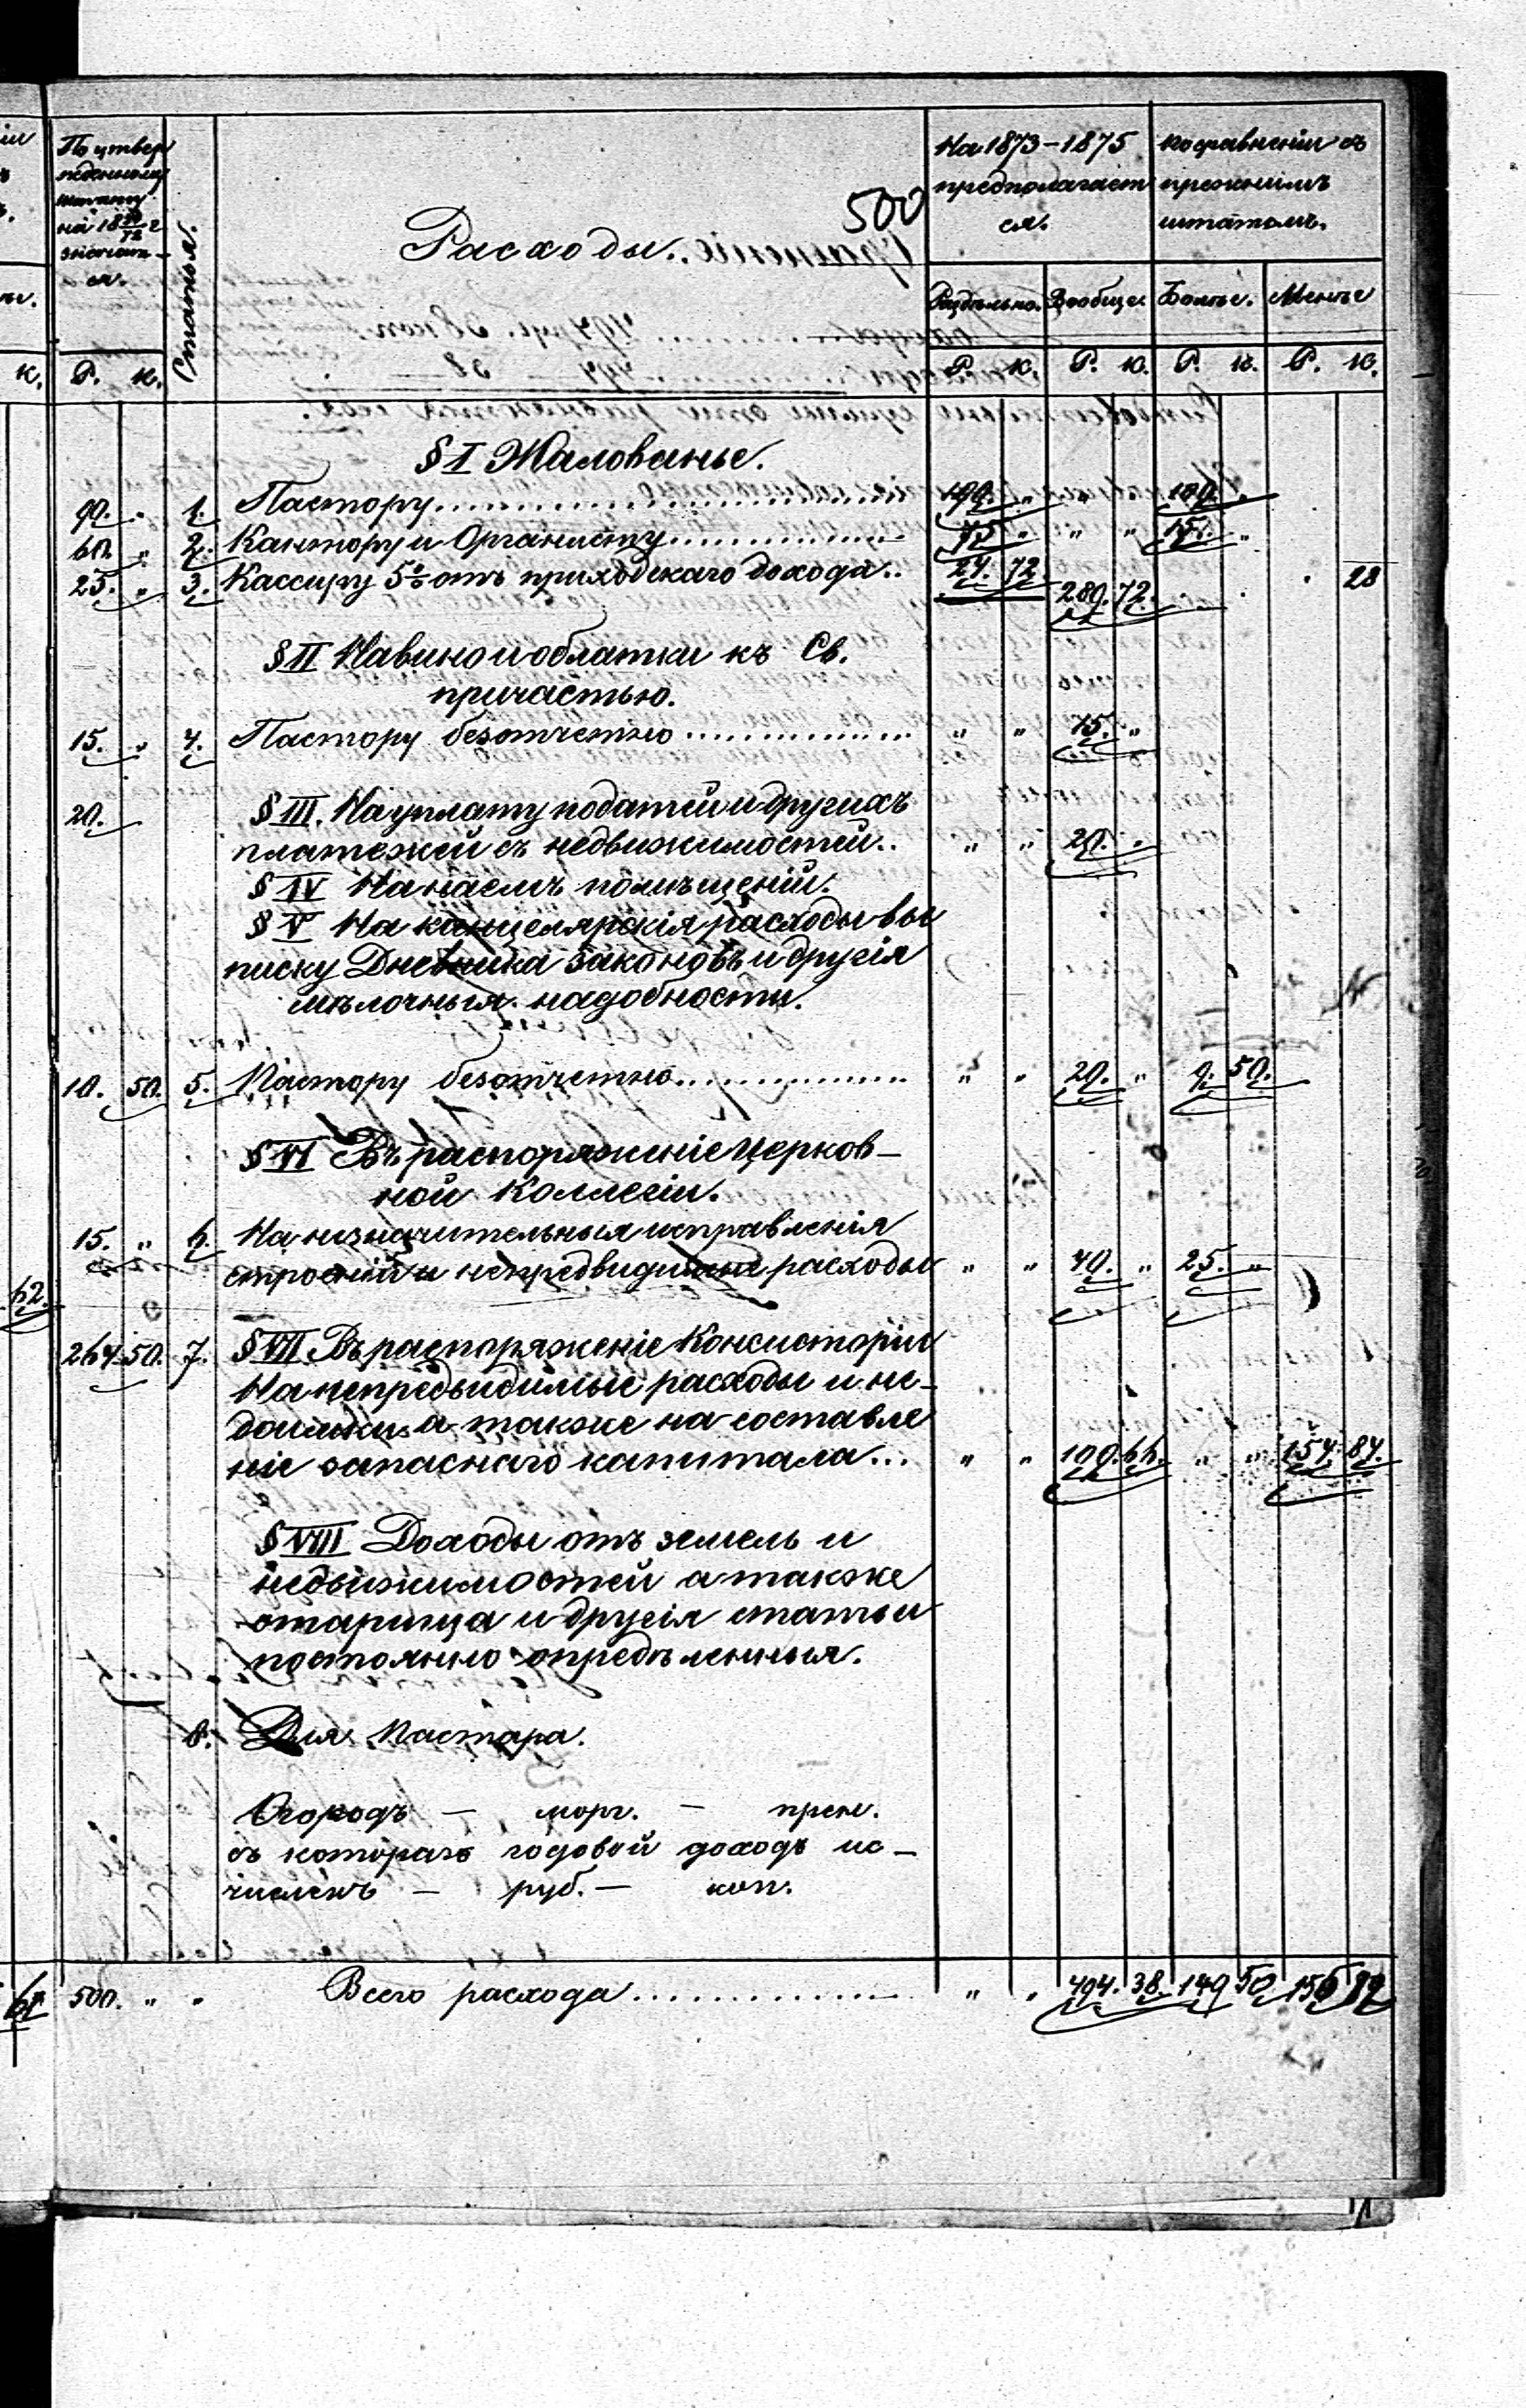 500
По утвер
жденному
штату
на 18 70/72 г
значит-
ся.
Статья.
Расходы.
На 1873-1875
предполагает
ся.
по сравненію съ
прежнимъ
штатомъ.
Раздѣльно. Вообще. Болѣе. Менѣе
К. Р. К. Р. К. Р. К. Р. К. Р. К.
§ I Жалованье.
90. „ 1. Пастору 190. „ „ 100. „
60. „ 2. Кантору и Органисту 75 „ „ „ 15. „
25. „ 3. Кассиру 5% отъ приходскаго дохода.. 24. 72 289. 72. 28
§ II На вино и облатки къ Св.
причастью.
15. „ 4. Пастору безотчетно „ „ 15. „
20. § III. На уплату податей и другихъ
платежей съ недвижимостей.. „ „ 20. „
§ IV На наемъ помѣщеній.
§ V На канцелярскія расходы вы
писку Дневника законовъ и другія
мѣлочныя надобности.
10. 50. 5. Пастору безотчетно „ „ 20. „ 9. 50.
§ VI Въ распоряженіе Церков-
ной Коллегіи.
15. „ 6. На незначительныя исправленія
строеній и непредвидимыя расходы „ „ 40. „ 25. „
62.
264 50. 7. § VII Въ распоряженіе Консисторіи
На непредвидимые расходы и не-
доимки а также на составле
ніе запаснаго капитала... „ „ 109. 66. „ „ 154. 84.
§ VIII Доходы отъ земель и
недвижимостей а также
отарица и другія статьи
постоянно опредѣленныя.
8. Для Пастора.
Огородъ — морг. — прен.
съ котораго годовой доходъ ис-
численъ — руб. — коп.
500. „ „ Всего расхода „ „ 494. 38. 149 50